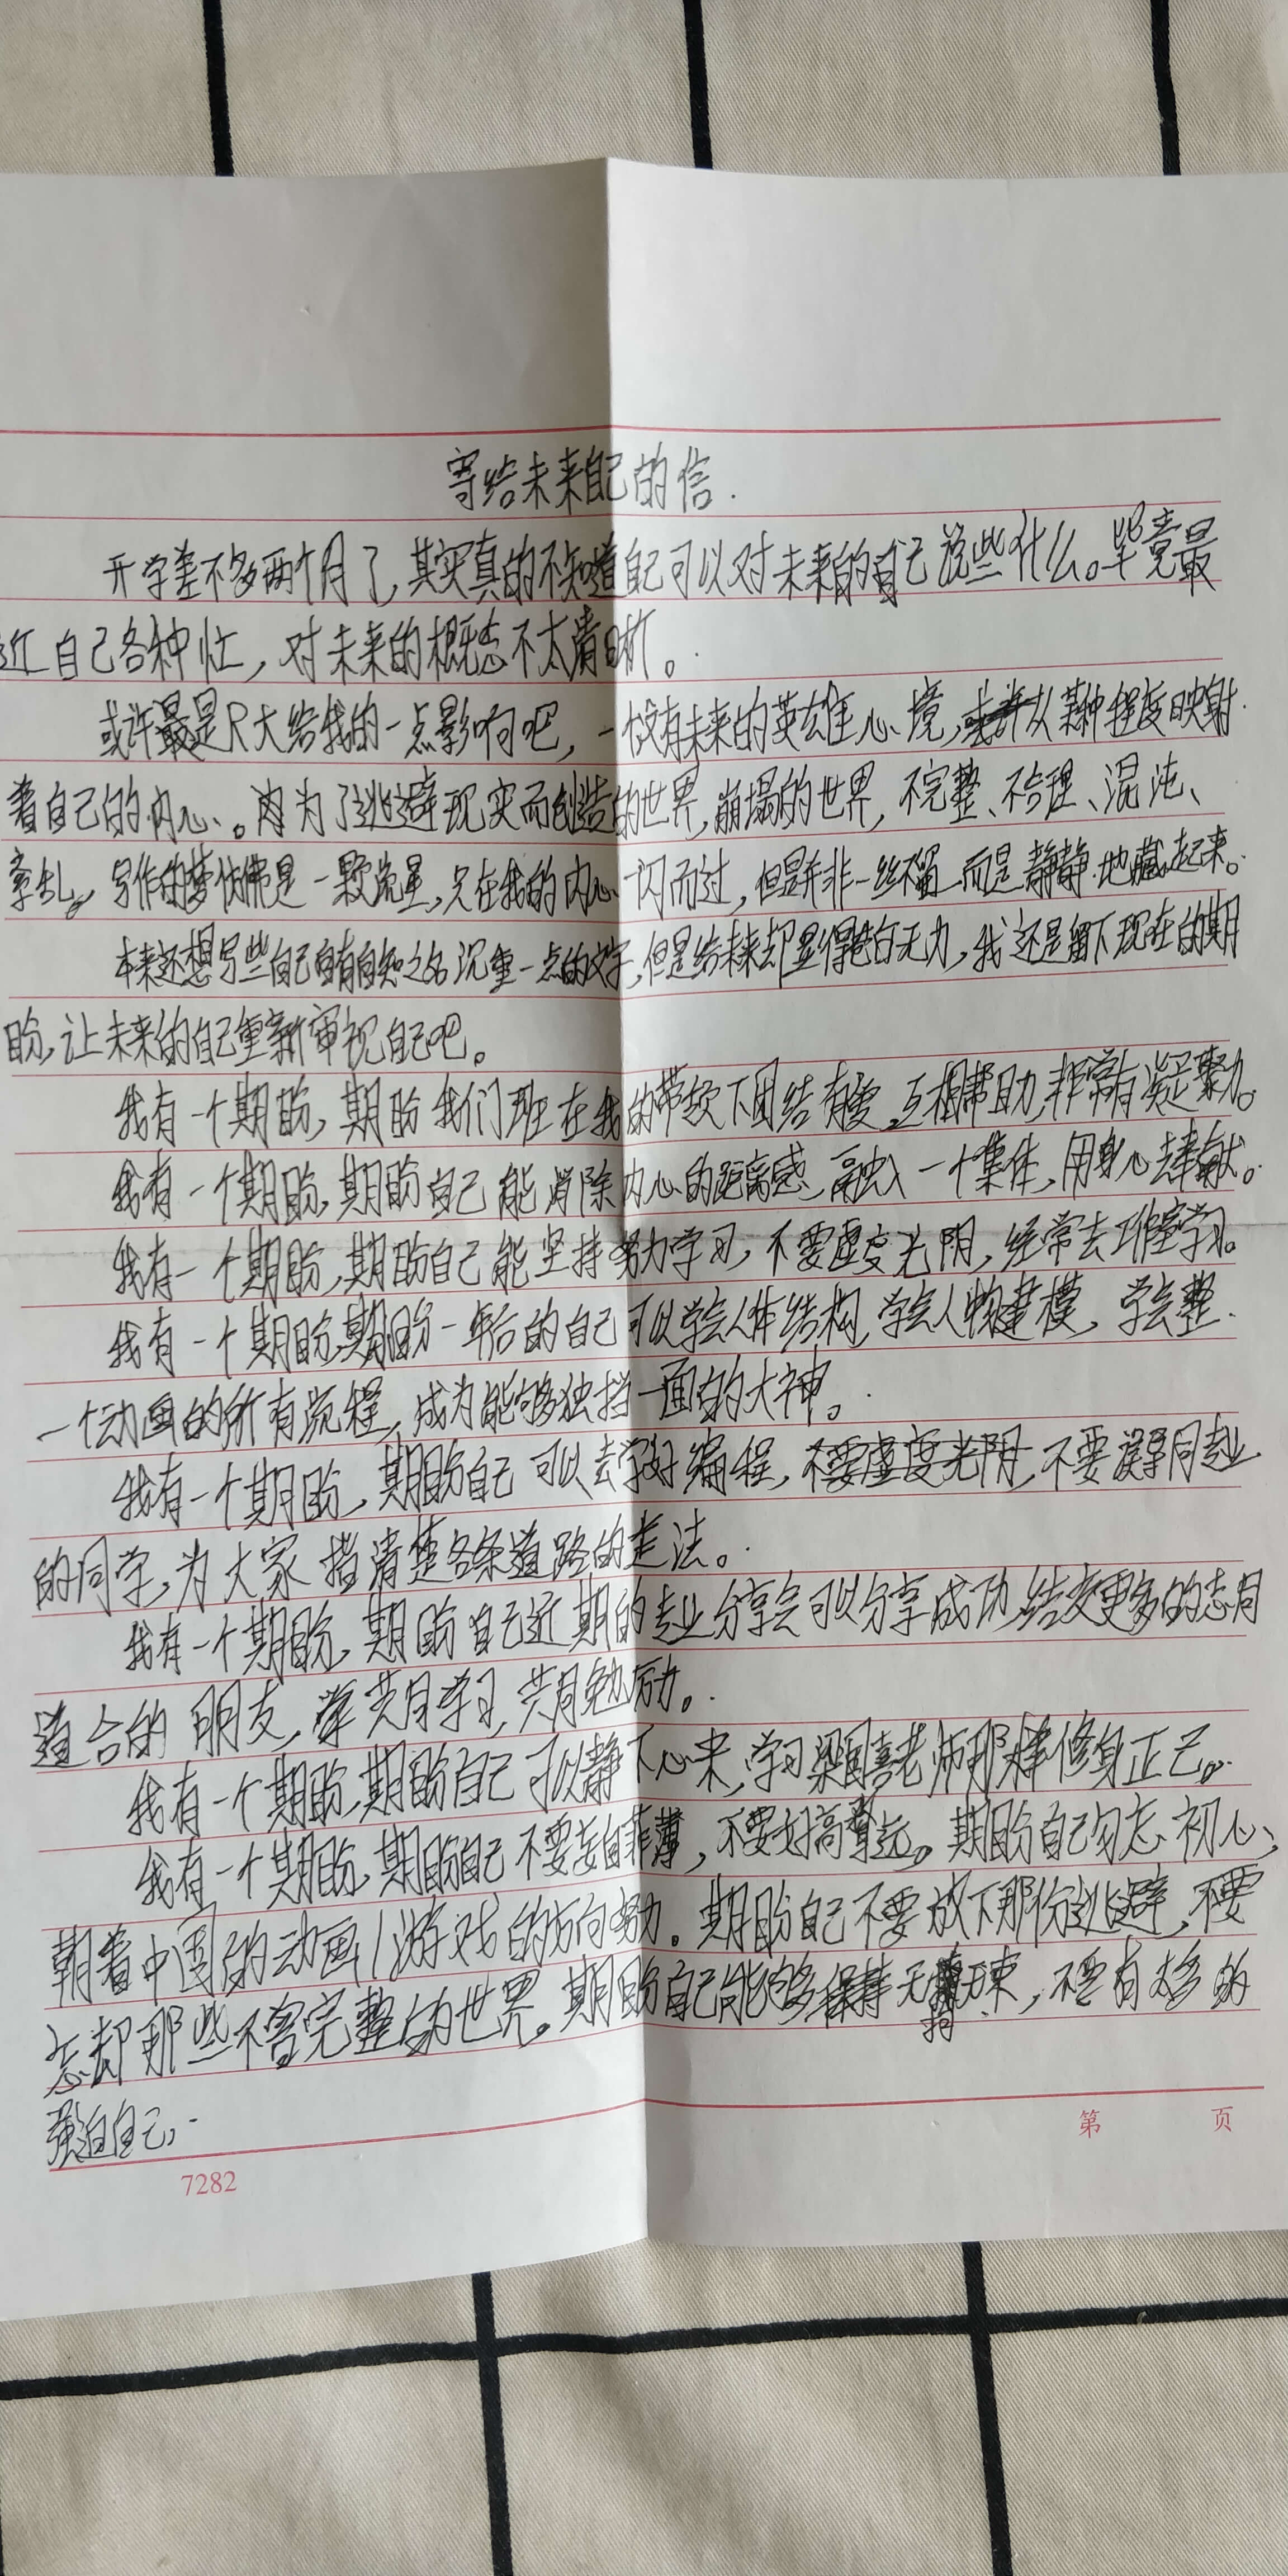 寄给未来自己的信.
开学差不多两个月了,其实真的不知道自己可以对未来的自己说些什么。毕竟最
近自己各种忙,对未来的概念不太清晰。
或许最是尺大给我的一点影响吧,一个没有未来的英雄心境,从某种程度映射
着自己的内心。为了逃避现实而创造的世界,崩塌的世界,不完整、不合理、混沌、
紊乱。写作的梦仿佛是一颗流星,只在我的内心一闪而过,但是并非一丝不留,而是静静地藏起来。
本来还想写些自己自有自知之名沉重一点的文字,但是给未来却显得苍白无力,我还是留下现在的期
盼,让未来的自己重新审视自己吧。
我有一个期盼,期盼我们班在我的带领下团结有爱,互相帮助,非常有凝聚力。
我有一个期盼,期盼自己能消除内心的距离感,融入一个集体,用身心去奉献。
我有一个期盼,期盼自己能坚持努力学习,不要虚度光阴,经常去工作室学习。
我有一个期盼,期盼一年后的自己可以学会人体结构,学会人物建模,学会整
一个动画的所有流程,成为能够独挡一面的大神。
我有一个期盼,期盼自己可以去学好编程,不要虚度光阴,不要误导同专业
的同学,为大家指清楚各条道路的走法。
我有一个期盼,期盼自己近期的专业分享会可以分享成功,结交更多的志同
道合的朋友,共同学习,共同勉励。
我有一个期盼,期盼自己可以静下心来,学习梁国喜老师那样修身正己。
我有一个期盼,期盼自己不要妄自菲薄,不要好高骛远。期盼自己勿忘初心,
朝着中国的动画/游戏的方向努力。期盼自己不要放下那份逃避,不要
忘却那些不完整的世界。期盼自己能够保持无拘无束,不要有太多的
强迫自己,
7282
第 页